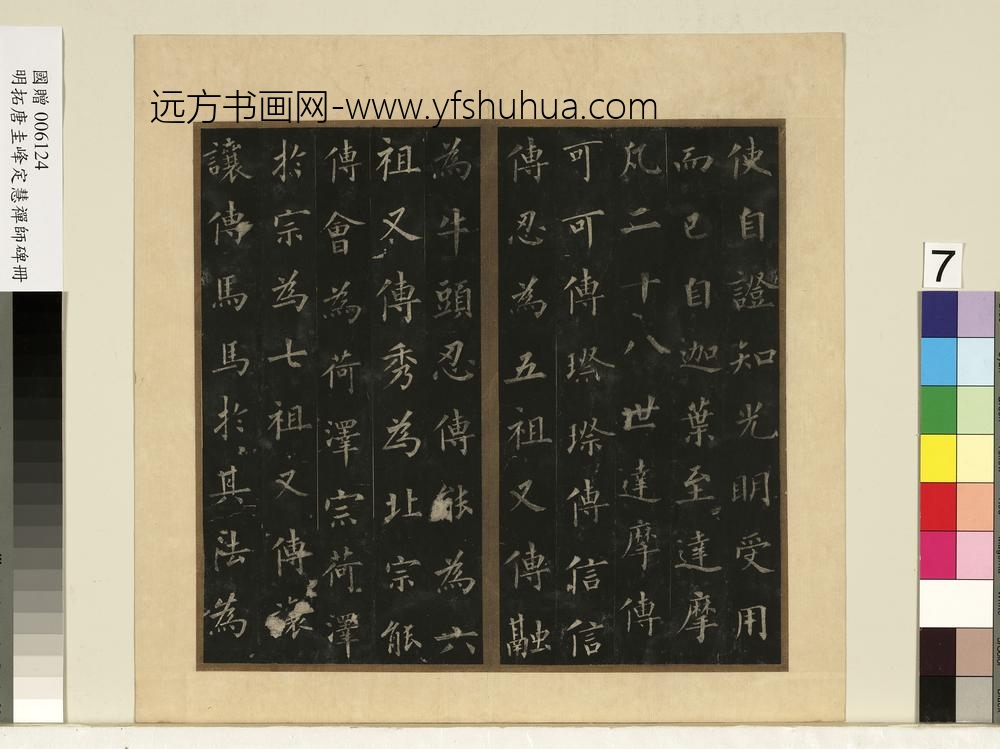 远方书画网-www.yfshuhua.com
國贈 006124
明拓唐圭峰定慧禪師碑冊
7
使自證知光明受用
而已自迦葉至達摩
凡二十八世達摩傳
可可傳璨璨傳信信
傳忍為五祖又傳融
為牛頭忍傳能為六
祖又傳秀為北宗能
傳會為荷澤宗荷澤
於宗為七祖又傳讓
讓傳馬馬於其法為